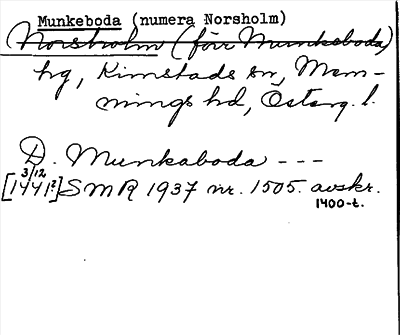 Munkeboda (numera Norsholm)
Norsholm (förr Munkeboda)
hg, Kimstads sn, Mem-
mings hd, Österg. l.
D. Munkaboda ---
3/12
[1441?] SMR 1937 nr. 1505. avskr.
1400-t.